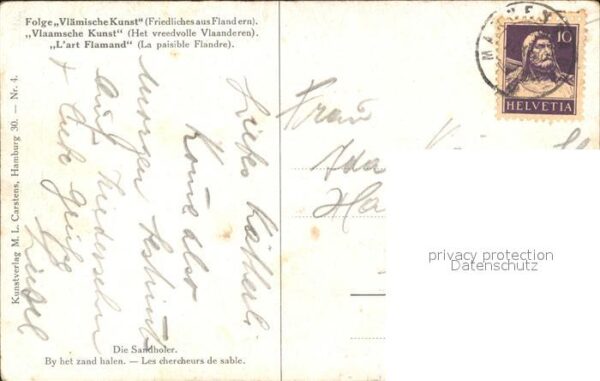 Folge „Vlämische Kunst“ (Friedliches aus Flandern).
„Vlaamsche Kunst“ (Het vreedvolle Vlaanderen).
„L'art Flamand“ (La paisible Flandre).
Kunstverlag M. L. Carstens, Hamburg 30. — Nr. 4.
Liebs Kätherli.
Komme also
morgen bestimmt
auf Wiedersehn
+ Gute Grüsse
Liesel
Die Sandholer.
By het zand halen. — Les chercheurs de sable.
10
HELVETIA
Frau
Ida
Ha
privacy protection
Datenschutz